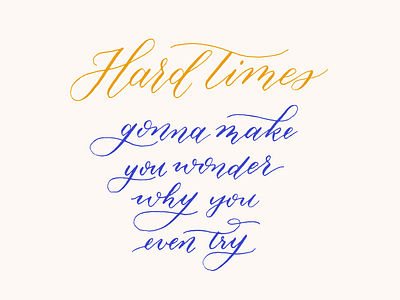 Hard Times
gonna make
you wonder
why you
even try